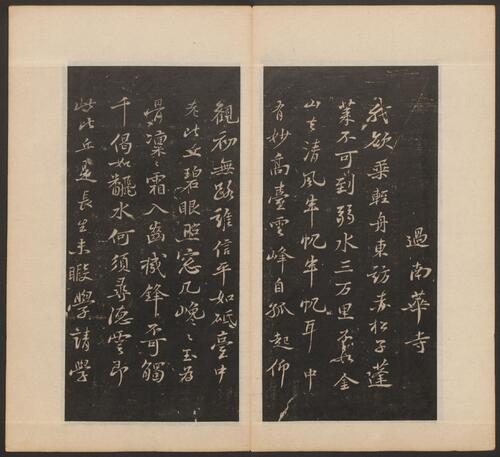 過南華寺
我欲乘輕舟東訪赤松子蓬
萊不可到弱水三万里不如金
山去清風半帆半帆耳中
有妙高臺雲峰自孤起仰
觀初無路誰信平如砥臺中
老比丘碧眼照窓几巉〻玉為
骨凜〻霜入齒機鋒不可觸
千偈如翻水何須尋德雲即
此比丘是長生未暇學請學